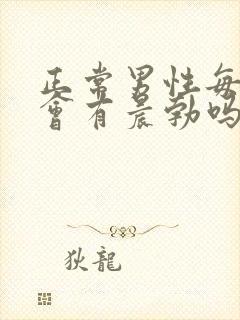 正常男性每
会有晨勃吗
狄龍